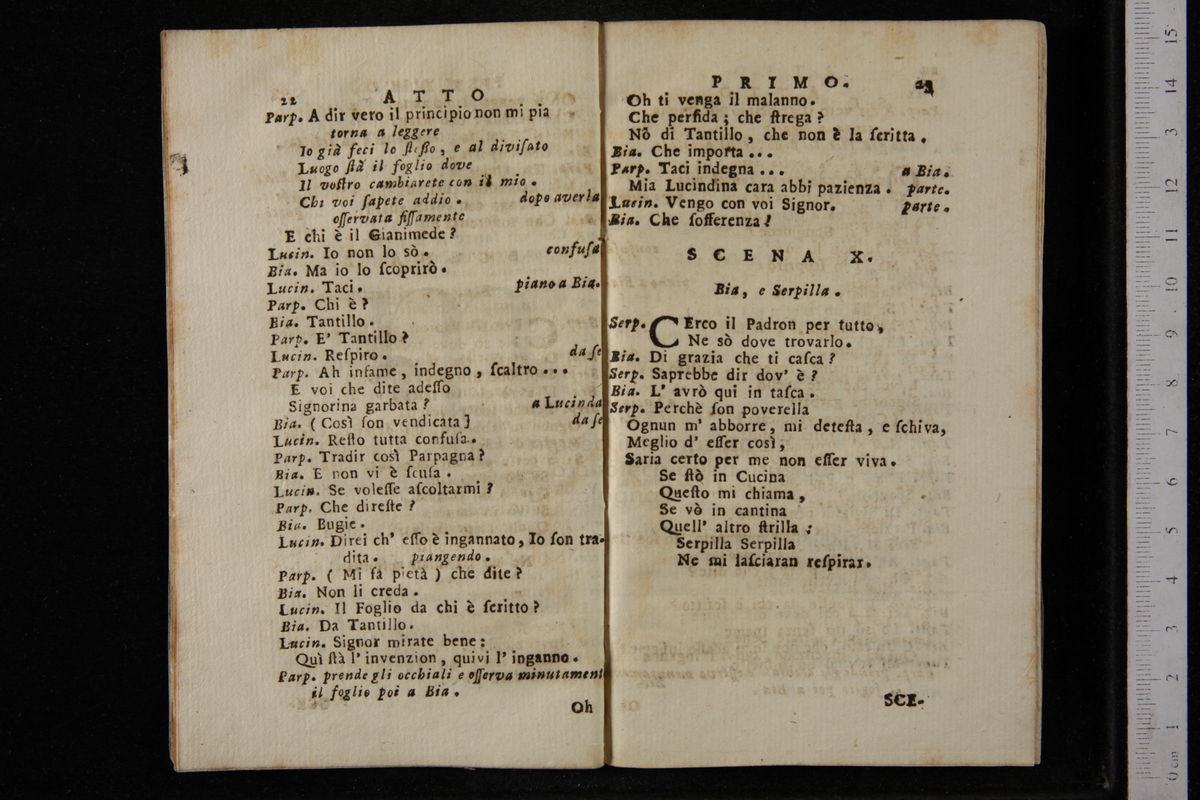 22 ATTO
Parp. A dir vero il principio non mi pia
torna a leggere
Io già feci lo ſteſſo, e al diviſato
Luogo ſtà il foglio dove
Il voſtro cambiarete con il mio.
Chi voi ſapete addio. dopo averla
oſſervata fiſſamente
E chi è il Gianimede?
Lucin. Io non lo sò. confuſa
Bia. Ma io lo ſcoprirò.
Lucin. Taci. piano a Bia.
Parp. Chi è?
Bia. Tantillo.
Parp. E' Tantillo?
Lucin. Reſpiro. da ſe
Parp. Ah infame, indegno, ſcaltro...
E voi che dite adeſſo
Signorina garbata? a Lucinda
Bia. (Così ſon vendicata] da ſe
Lucin. Reſto tutta confuſa.
Parp. Tradir così Parpagna?
Bia. E non vi è ſcuſa.
Lucin. Se voleſſe aſcoltarmi?
Parp. Che direſte?
Bia. Bugie.
Lucin. Direi ch' eſſo è ingannato, Io ſon tra-
dita. piangendo.
Parp. (Mi fà pietà) che dite?
Bia. Non li creda.
Lucin. Il Foglio da chi è ſcritto?
Bia. Da Tantillo.
Lucin. Signor mirate bene:
Quì ſtà l' invenzion, quivi l' inganno.
Parp. prende gli occhiali e oſſerva minutament
il foglio poi a Bia.
Oh
PRIMO. 23
Oh ti venga il malanno.
Che perfida; che ſtrega?
Nò di Tantillo, che non è la ſcritta.
Bia. Che importa...
Parp. Taci indegna... a Bia.
Mia Lucindina cara abbi pazienza. parte.
Lucin. Vengo con voi Signor. parte.
Bia. Che ſofferenza!
SCENA X.
Bia, e Serpilla.
Serp. CErco il Padron per tutto,
Ne sò dove trovarlo.
Bia. Di grazia che ti caſca?
Serp. Saprebbe dir dov' è?
Bia. L' avrò qui in taſca.
Serp. Perchè ſon poverella
Ognun m' abborre, mi deteſta, e ſchiva,
Meglio d' eſſer così,
Saria certo per me non eſſer viva.
Se ſtò in Cucina
Queſto mi chiama,
Se vò in cantina
Quell' altro ſtrilla:
Serpilla Serpilla
Ne mi laſciaran reſpirar.
SCE-
0 cm 1 2 3 4 5 6 7 8 9 10 11 12 13 14 15